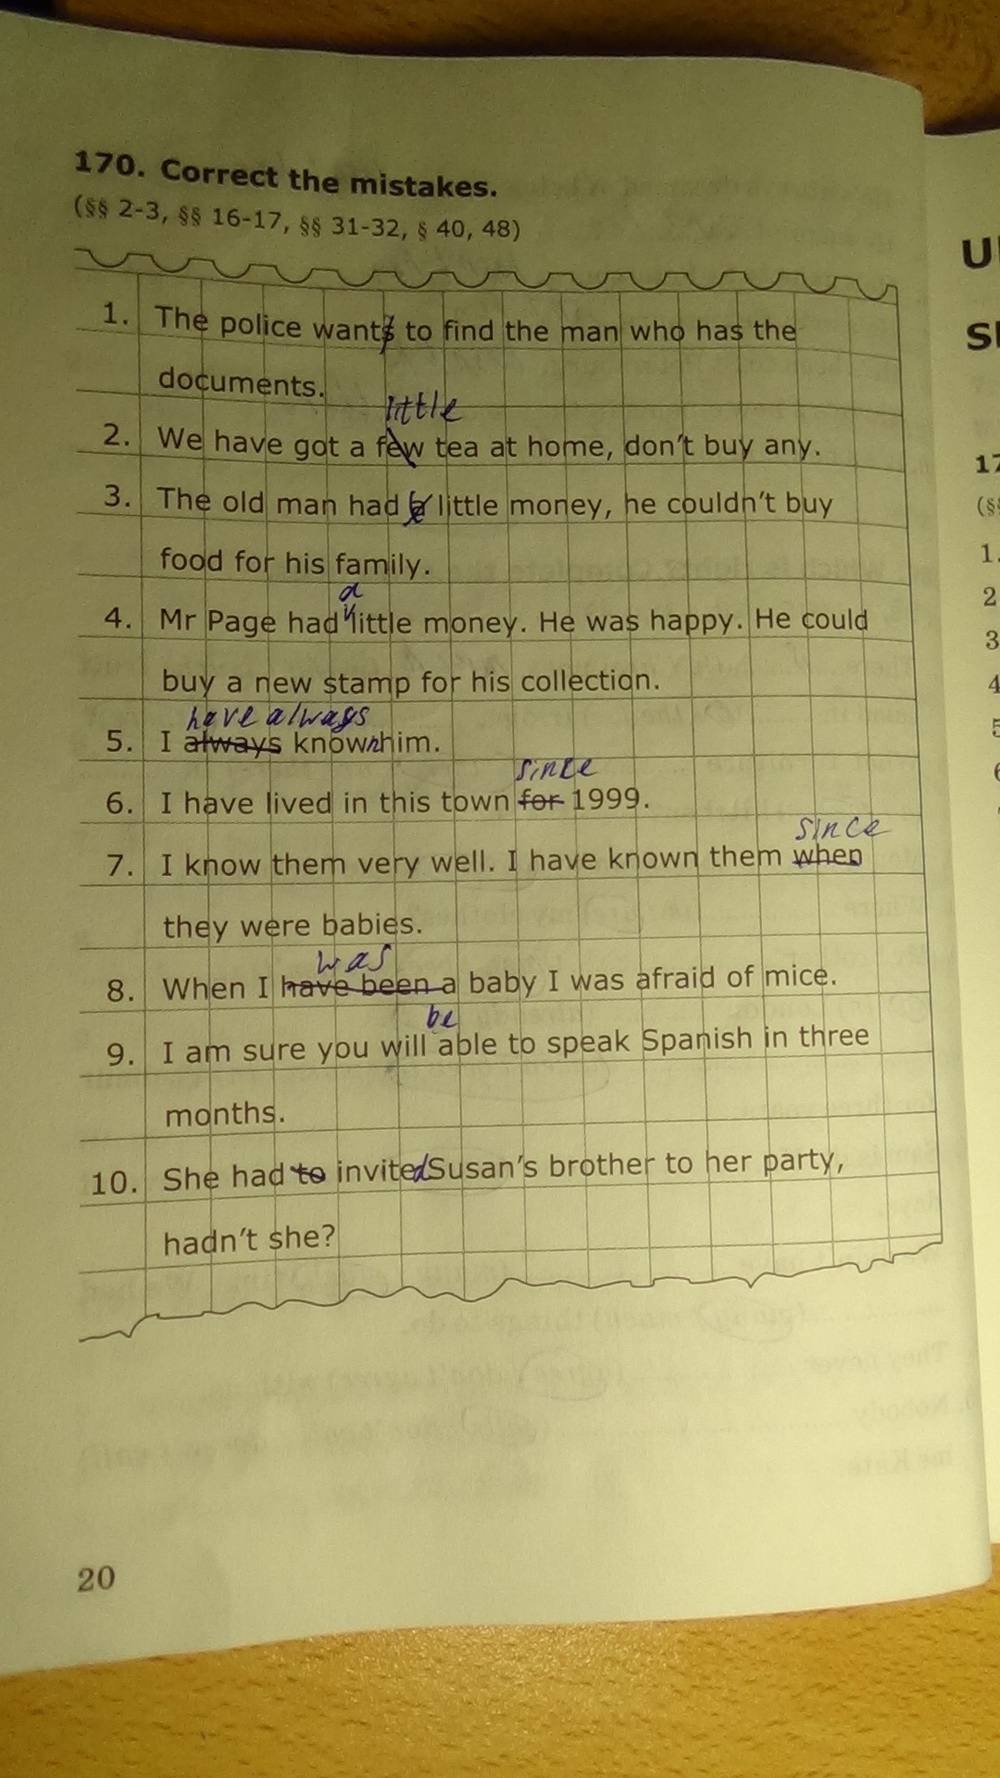 170. Correct the mistakes.
(§§ 2-3, §§ 16-17, §§ 31-32, § 40, 48)
1. The police wants to find the man who has the
documents.
little
2. We have got a few tea at home, don't buy any.
3. The old man had a little money, he couldn't buy
food for his family.
a
4. Mr Page had little money. He was happy. He could
buy a new stamp for his collection.
have always
5. I always known him.
since
6. I have lived in this town for 1999.
since
7. I know them very well. I have known them when
they were babies.
was
8. When I have been a baby I was afraid of mice.
be
9. I am sure you will able to speak Spanish in three
months.
10. She had to invited Susan's brother to her party,
hadn't she?
20
U
S
17
(§
1.
2
3
4
5